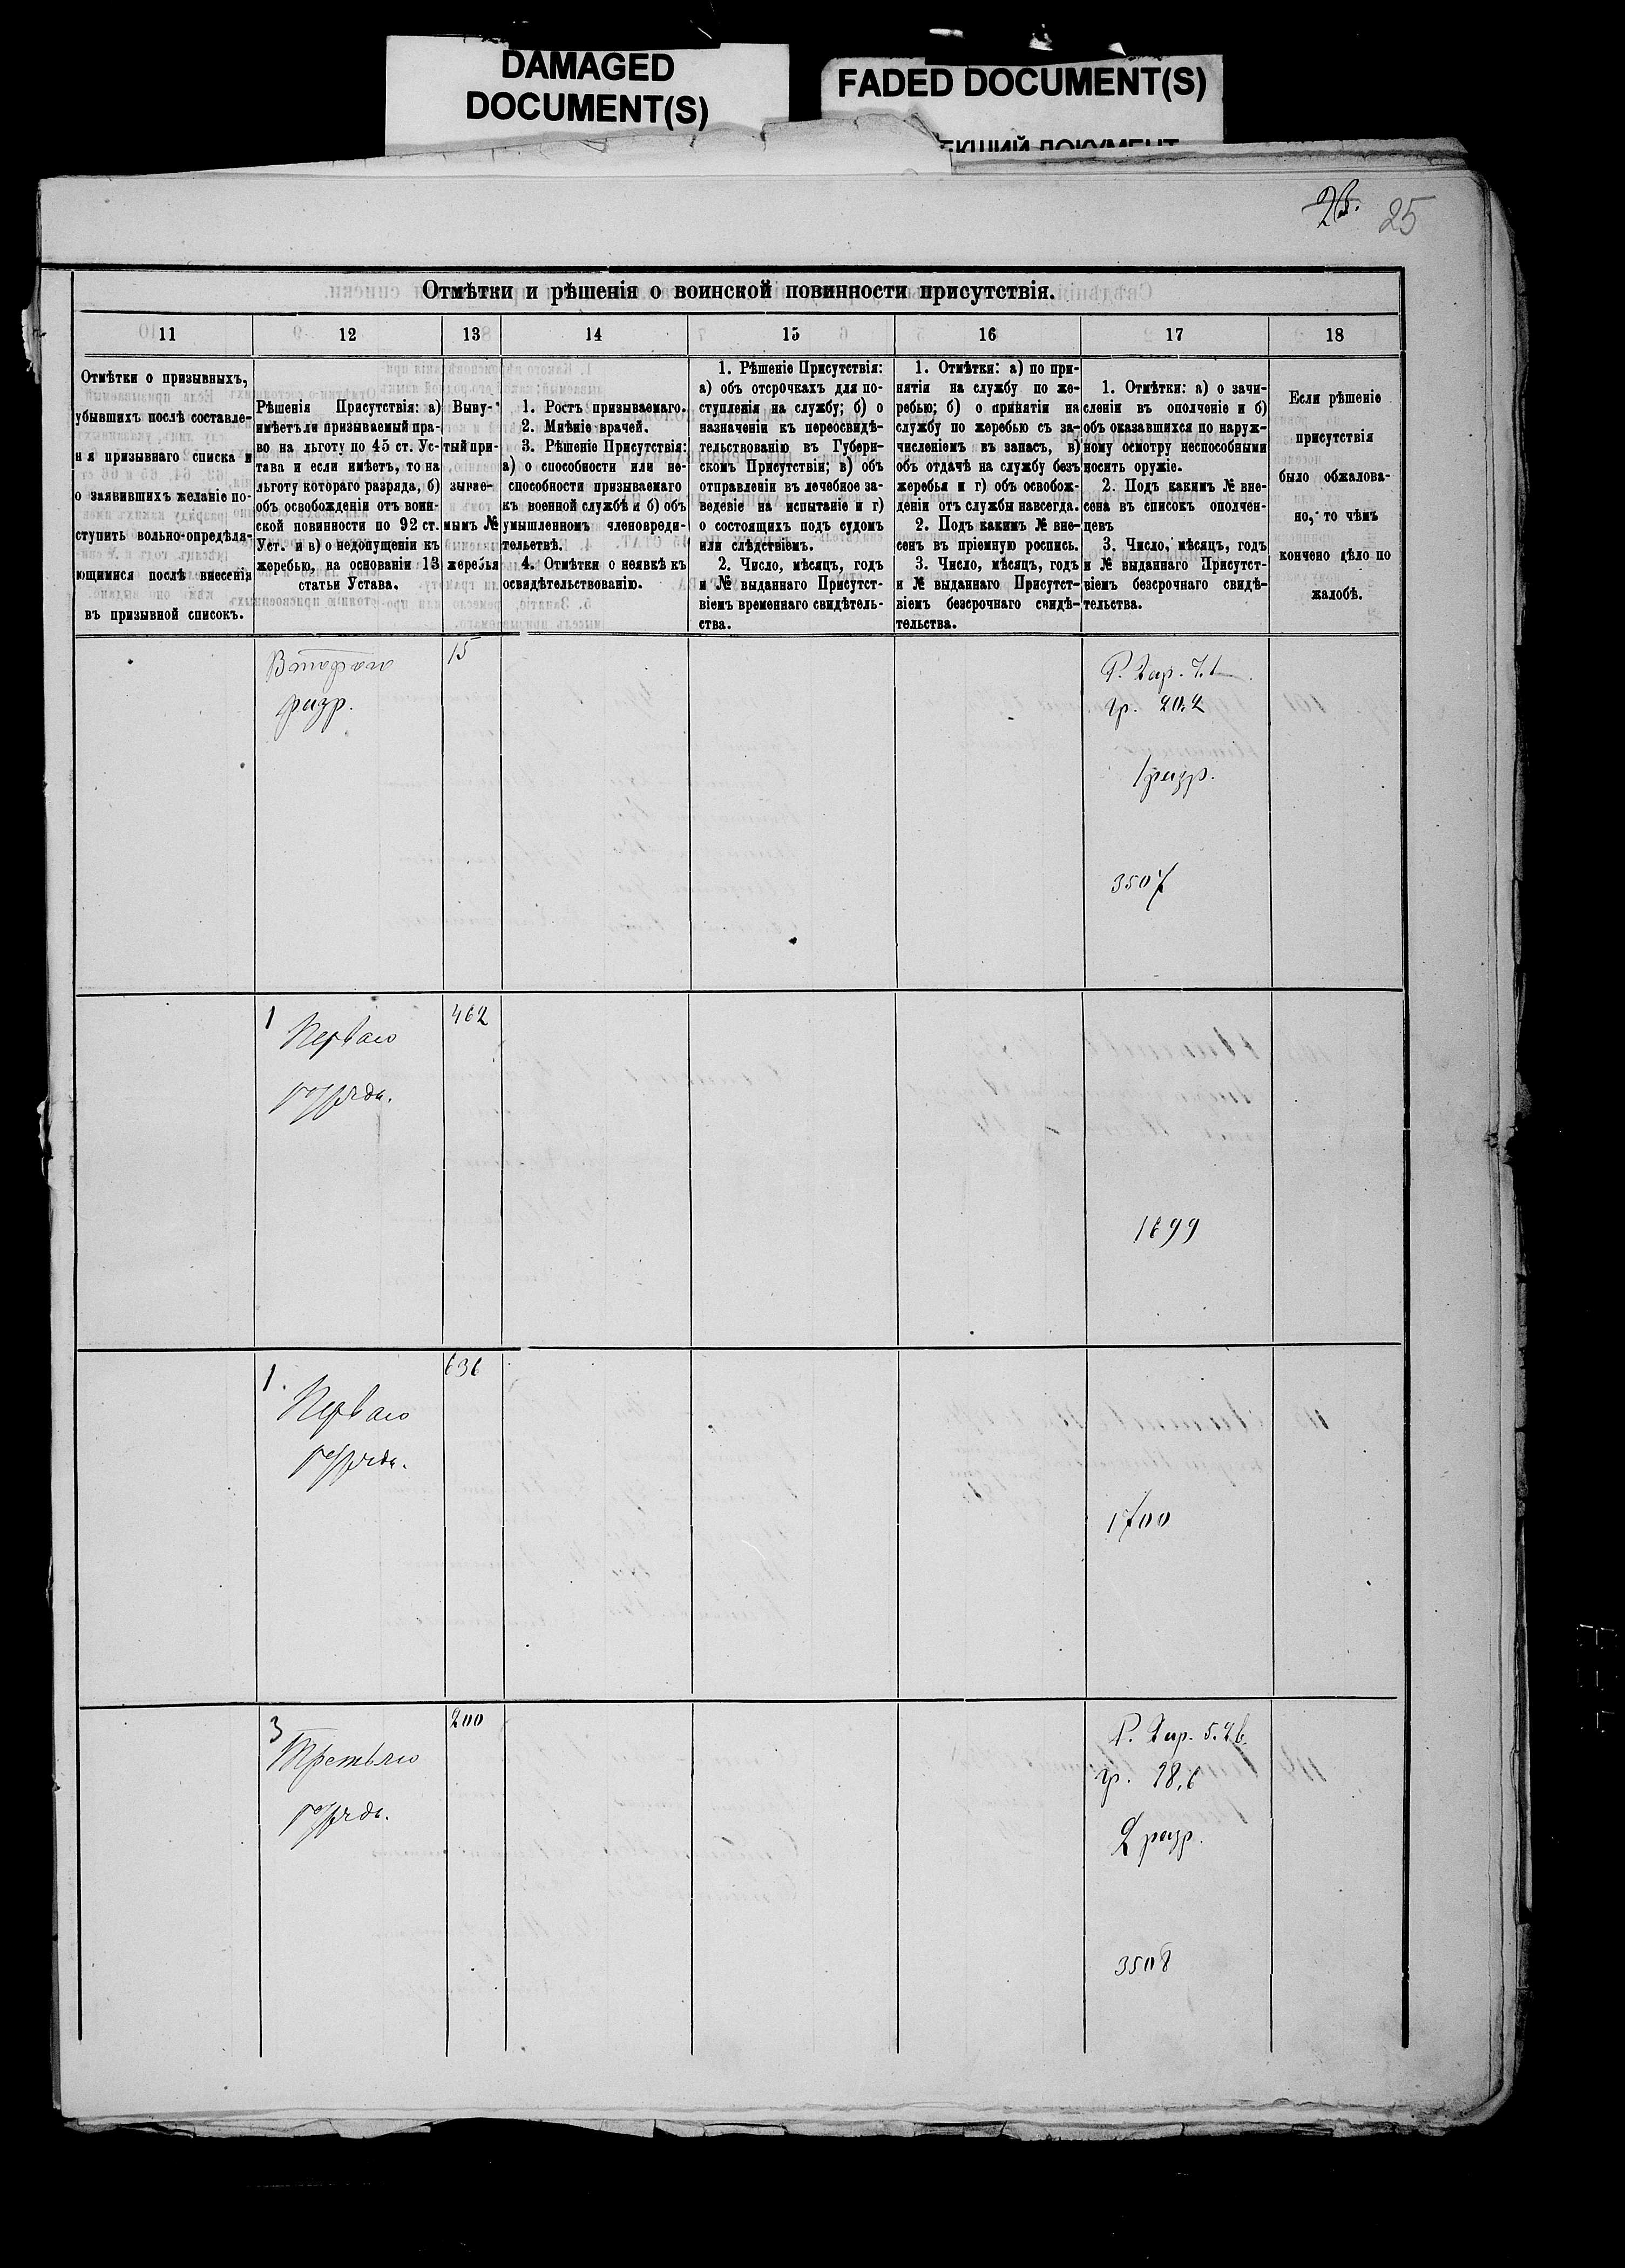 DAMAGED
DOCUMENT(S)
FADED DOCUMENT(S)
ДОКУМЕНТ
26. 25
Отмѣтки и рѣшенія о воинской повинности присутствія.
11 12 13 14 15 16 17 18
Отмѣтки о призывныхъ,
убывшихъ послѣ составле-
н я призывнаго списка и
о заявившихъ желаніе по-
ступить вольно-опредѣля-
ющимися послѣ внесенія
въ призывной списокъ.
Рѣшенія Присутствія: а)
имѣетъ ли призываемый пра-
во на льготу по 45 ст. Ус-
тава и если имѣетъ, то на
льготу котораго разряда, б)
объ освобожденіи отъ воин-
ской повинности по 92 ст.
Уст. и в) о недопущеніи къ
жеребью, на основаніи 13
статьи Устава.
Выну-
тый при-
зывае-
мымъ №
жеребья
1. Ростъ призываемаго.
2. Мнѣніе врачей.
3. Рѣшеніе Присутствія:
а) о способности или не-
способности призываемаго
къ военной службѣ и б) объ
умышленномъ членовреди-
тельствѣ.
4. Отмѣтки о неявкѣ къ
освидѣтельствованію.
1. Рѣшеніе Присутствія:
а) объ отсрочкахъ для по-
ступленія на службу; б) о
назначеніи къ переосвидѣ-
тельствованію въ Губерн-
скомъ Присутствіи; в) объ
отправленіи въ лечебное за-
ведевіе на испытаніе и г)
о состоящихъ подъ судомъ
или слѣдствіемъ.
2. Число, мѣсяцъ, годъ
и № выданнаго Присутст-
віемъ временнаго свидѣтель-
ства.
1. Отмѣтки: а) по при-
нятія на службу по же-
ребью; б) о принятіи на
службу по жеребью съ за-
численіемъ въ запасъ, в)
объ отдачѣ на службу безъ
жеребья и г) объ освобож-
деніи отъ службы навсегда.
2. Подъ какимъ № вне-
сенъ въ пріемную роспись.
3. Число, мѣсяцъ, годъ
и № выданнаго Присутст-
віемъ безсрочнаго свидѣ-
тельства.
1. Отмѣтки: а) о зачи-
сленіи въ ополченіе и б)
объ оказавшихся по наруж-
ному осмотру неспособными
носить оружіе.
2. Подъ какимъ № вне-
сена въ списокъ ополчен-
цевъ
3. Число, мѣсяцъ, годъ
и № выданнаго Присутст-
віемъ безсрочнаго свидѣ-
тельства.
Если рѣшеніе
присутствія
было обжалова-
но, то чѣмъ
кончено дѣло по
жалобѣ.
разр.
15
гр. 20.2
1 разр.
3507
1
Перваго
разряда.
462
1699
1.
Перваго
разряда.
636
1700
3
Третьяго
разряда.
200
гр. 18,6
2 разр.
3508